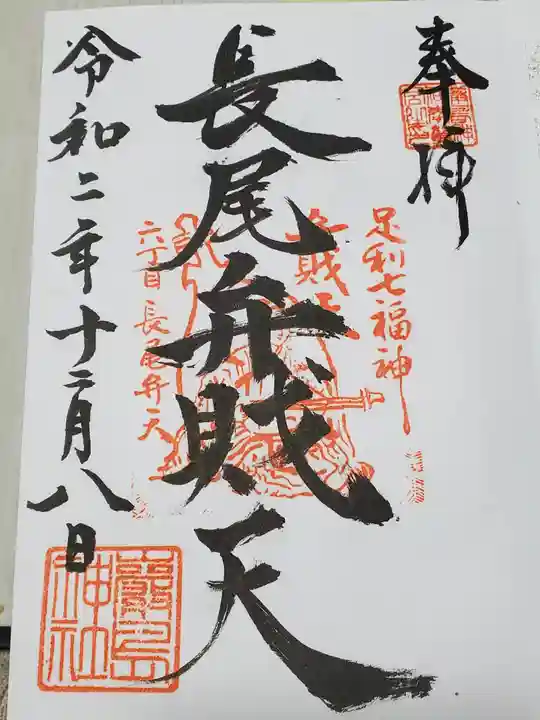 奉拝
足利七福神
長尾弁財天
六丁目長尾弁天
令和二年十二月八日
嚴島
神社